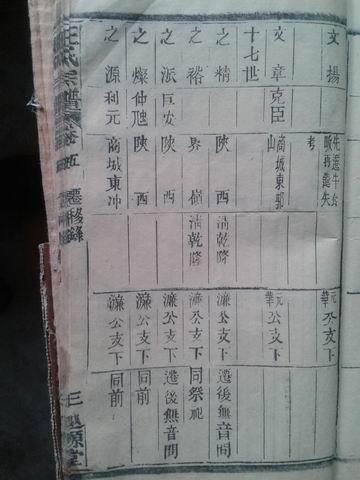 文揚 先遷牛 畈再遷失考 元華公支下
文章 克臣 商城東郭山 元華公支下
十七世
之精 陝西 清乾隆 濂公支下 遷後無音問
之裕 界嶺 清乾隆 濂公支下 同祭祀
之派 巨安 陝西 濂公支下 遷後無音問
之燦 仲 陝西 濂公支下 同前
之源 利元 商城東冲 濂公支下 同前
王氏宗譜 卷五 遷移錄 三 堂